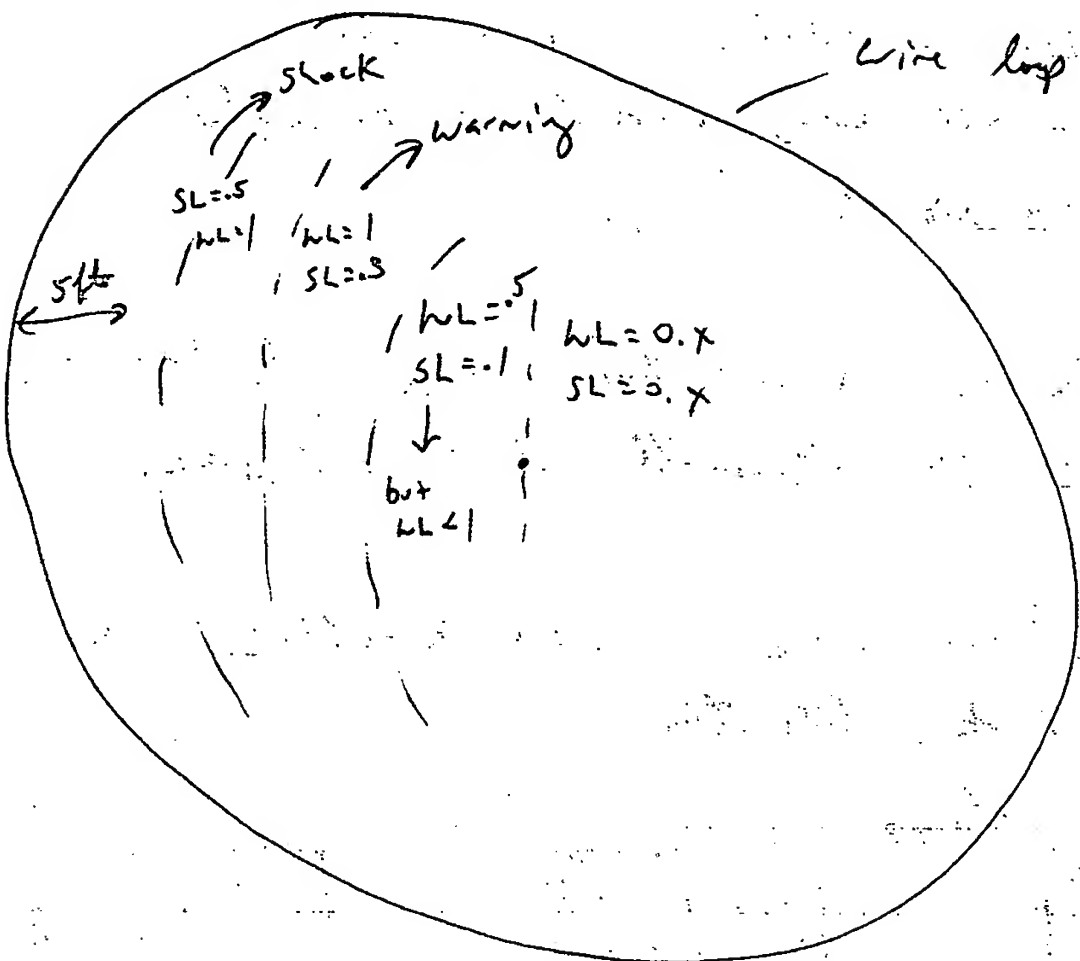 wire loop
shock
warning
SL=.5
WL=1
WL=1
SL=.3
5 ft
WL=.5
SL=.1
WL=0.x
SL=0.x
but
WL<1